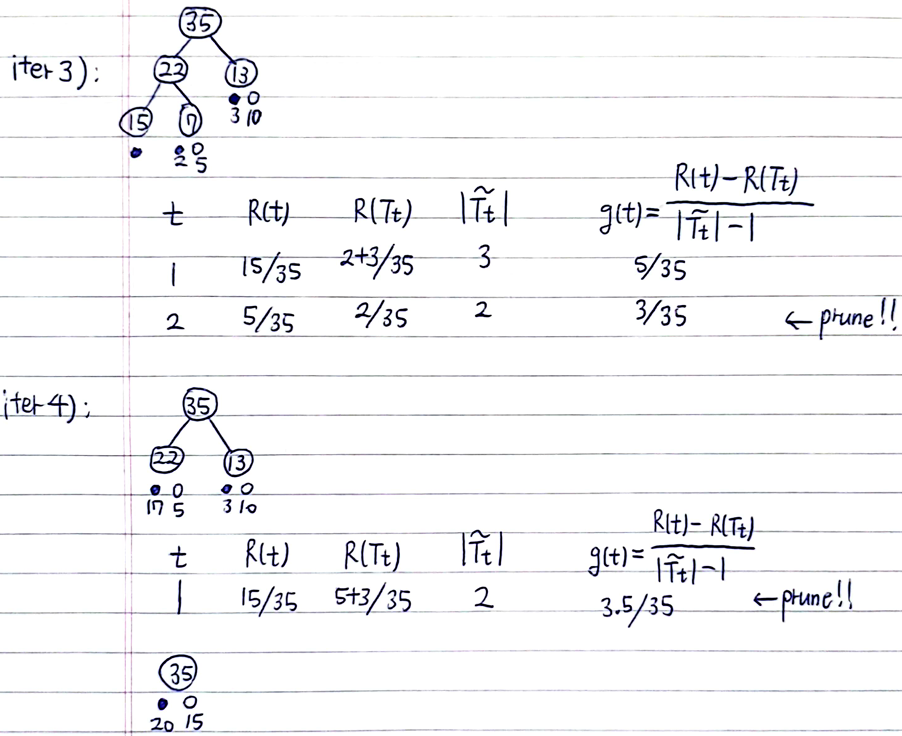 35
iter 3):
22 13
● ○
3 10
15 7
● ● ○
2 5
t R(t) R(Tt) |T̃t| g(t)= R(t)-R(Tt) / |T̃t|-1
1 15/35 2+3/35 3 5/35
2 5/35 2/35 2 3/35 ← prune!!
iter 4);
35
22 13
● ○ ● ○
17 5 3 10
t R(t) R(Tt) |T̃t| g(t)= R(t)- R(Tt) / |T̃t|-1
1 15/35 5+3/35 2 3.5/35 ← prune!!
35
● ○
20 15